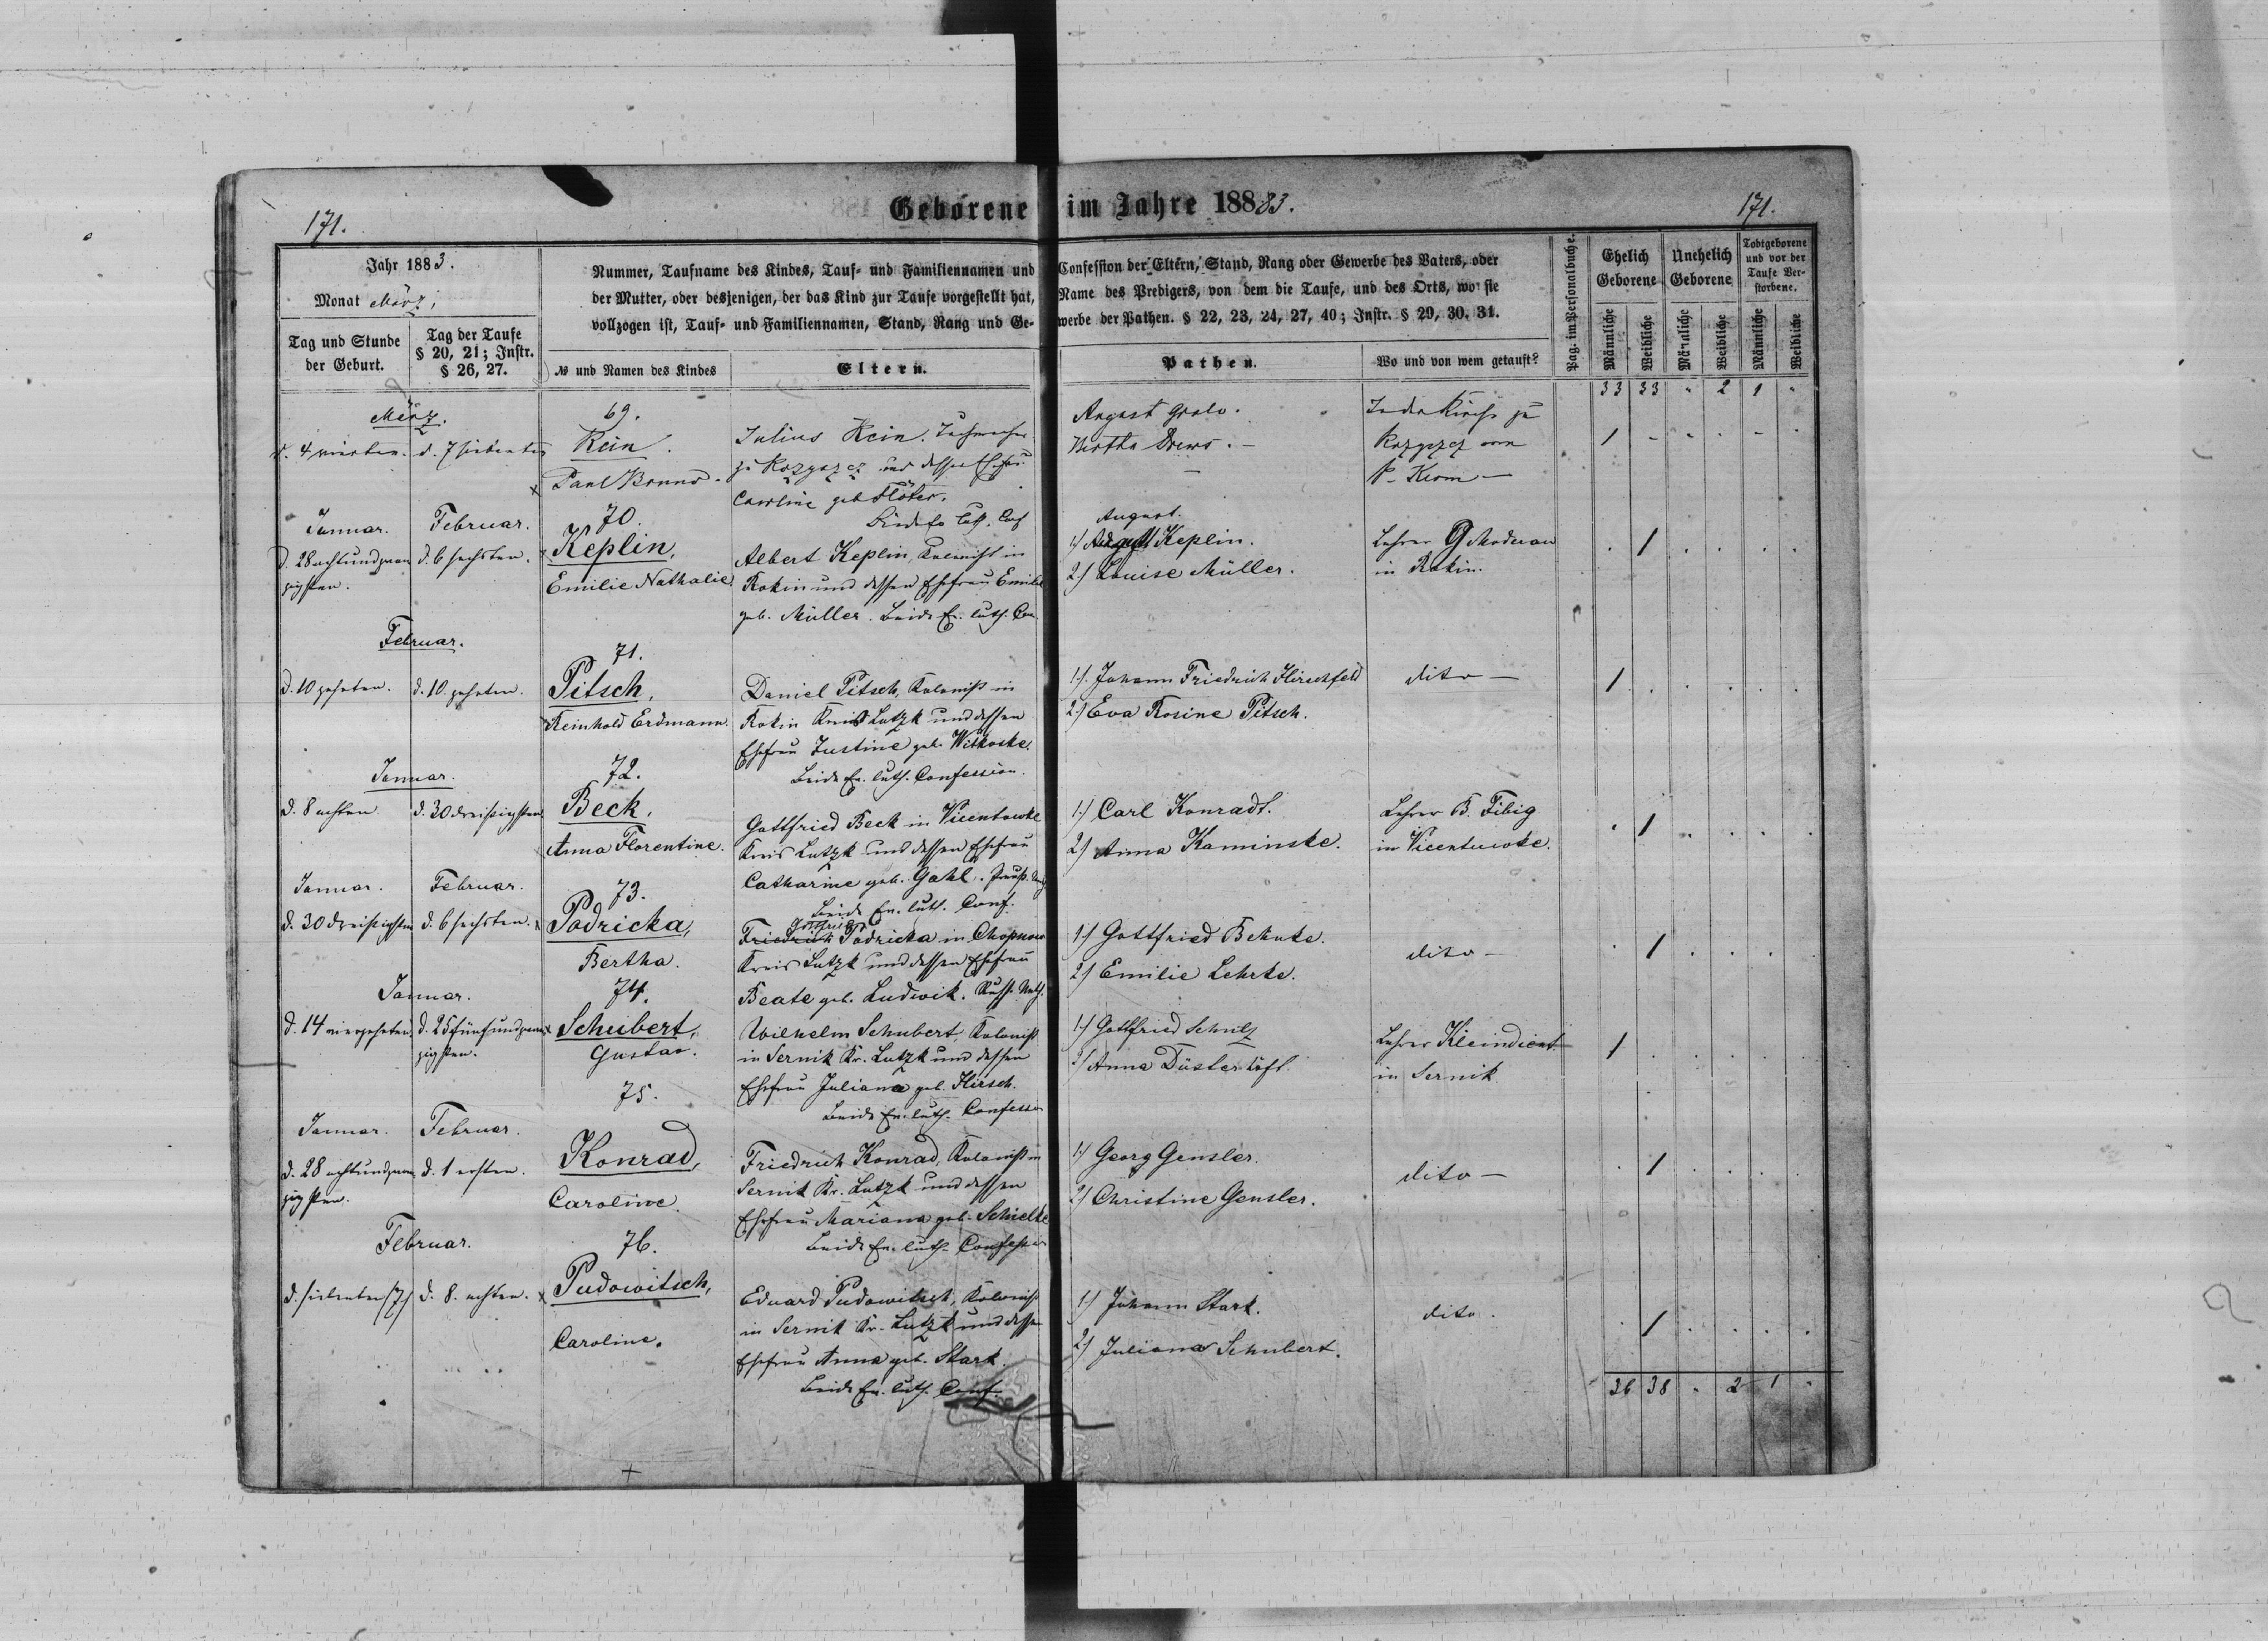 171.
Geborene im Jahre 188 83.
171.
Jahr 1883.
Monat März,
Tag und Stunde
der Geburt.
Tag der Taufe
§ 20, 21; Instr.
§ 26, 27.
Nummer, Taufname des Kindes, Tauf- und Familiennamen und Confession der Eltern, Stand, Rang oder Gewerbe des Vaters, oder
der Mutter, oder desjenigen, der das Kind zur Taufe vorgestellt hat, Name des Predigers, von dem die Taufe, und des Orts, wo sie
vollzogen ist, Tauf- und Familiennamen, Stand, Rang und Gewerbe der Pathen. § 22, 23, 24, 27, 40; Instr. § 29, 30. 31.
№ und Namen des Kindes
Eltern.
Pathen.
Wo und von wem getauft?
Pag. im Personalbuche.
Ehelich
Geborene
Unehelich
Geborene
Todtgeborene
und vor der
Taufe Ver-
storbene.
Männliche
Weibliche
Männliche
Weibliche
Männliche
Weibliche
33 33 " 2 1 "
März.
d. 4 vierten. d. 7 siebenten
69.
Rein.
Paul Bruno.
Julius Rein.
zu Rozyszcz und dessen Ehefrau
Caroline geb. Flöter.
August
Bertha Drews. —
In der Kirche zu
Rozyszcz von
P. Kerm —
1 - - - - -
Januar. Februar.
d. 28 achtundzwan d. 6 sechsten.
zigsten.
70.
Keplin,
Emilie Nathalie
Albert Keplin, Kolonist in
Rokin und dessen Ehefrau Emilie
geb. Müller. Beide Ev. luth. Con
August.
1) Keplin.
2) Louise Müller.
Lehrer G
in Rokin.
. 1 . . . .
Februar.
d. 10 zehnten. d. 10. zehnten.
71.
Pitsch,
Reinhold Erdmann.
Daniel Pitsch, Kolonist in
Rokin Kreis Lutzk und dessen
Ehefrau Justine geb. Witkoske.
Beide Ev. luth. Confession.
1). Johann Friedrich Hirschfeld
2) Eva Rosine Pitsch.
dito —
1 . . . . .
Januar.
d. 8 achten d. 30 dreißigsten
72.
Beck,
Anna Florentine.
Gottfried Beck in Vicentowke
Kreis Lutzk und dessen Ehefrau
Catharine geb. Gahl.
Beide Ev. luth. Conf.
1) Carl Konradt.
2) Anna Kaminske.
Lehrer B. Fibig
in Vicentuwke.
. 1 . . . .
Januar. Februar.
d. 30 dreißigsten d. 6 sechsten.
73.
Podricka,
Bertha.
Gottfried
Friedrich Podricka in Chopnow
Kreis Lutzk und dessen Ehefrau
Beate geb. Ludwik.
1) Gottfried Behnke.
2) Emilie Lehrke.
dito —
. 1 . . .
Januar.
d. 14 vierzehnten d. 25 fünfundzwan
zigsten.
74.
Schubert,
Gustav.
Wilhelm Schubert, Kolonist
in Sernik Kr. Lutzk und dessen
Ehefrau Juliana geb. Hirsch.
Beide Ev. luth. Confession
1) Gottfried Schulz
2) Anna Düsterhöft.
Lehrer Kleindienst
in Sernik
1 . . . . .
Januar. Februar.
d. 28 achtundzwan d. 1 ersten.
zigsten.
75.
Konrad,
Caroline.
Friedrich Konrad, Kolonist in
Sernik Kr. Lutzk und dessen
Ehefrau Mariana geb. Schielke
Beide Ev. luth. Confession
1) Georg Gensler.
2) Christine Gensler.
dito —
. 1 . . . .
Februar.
d. siebenten (7.) d. 8. achten.
76.
Pudowitsch,
Caroline.
Eduard Pudowitsch, Kolonist
in Sernik Kr. Lutzk und dessen
Ehefrau Anna geb. Stark.
Beide Ev. luth. Conf.
1) Johann Stark.
2) Juliana Schubert.
dito.
. 1 . . . .
36 38 " 2 1 "